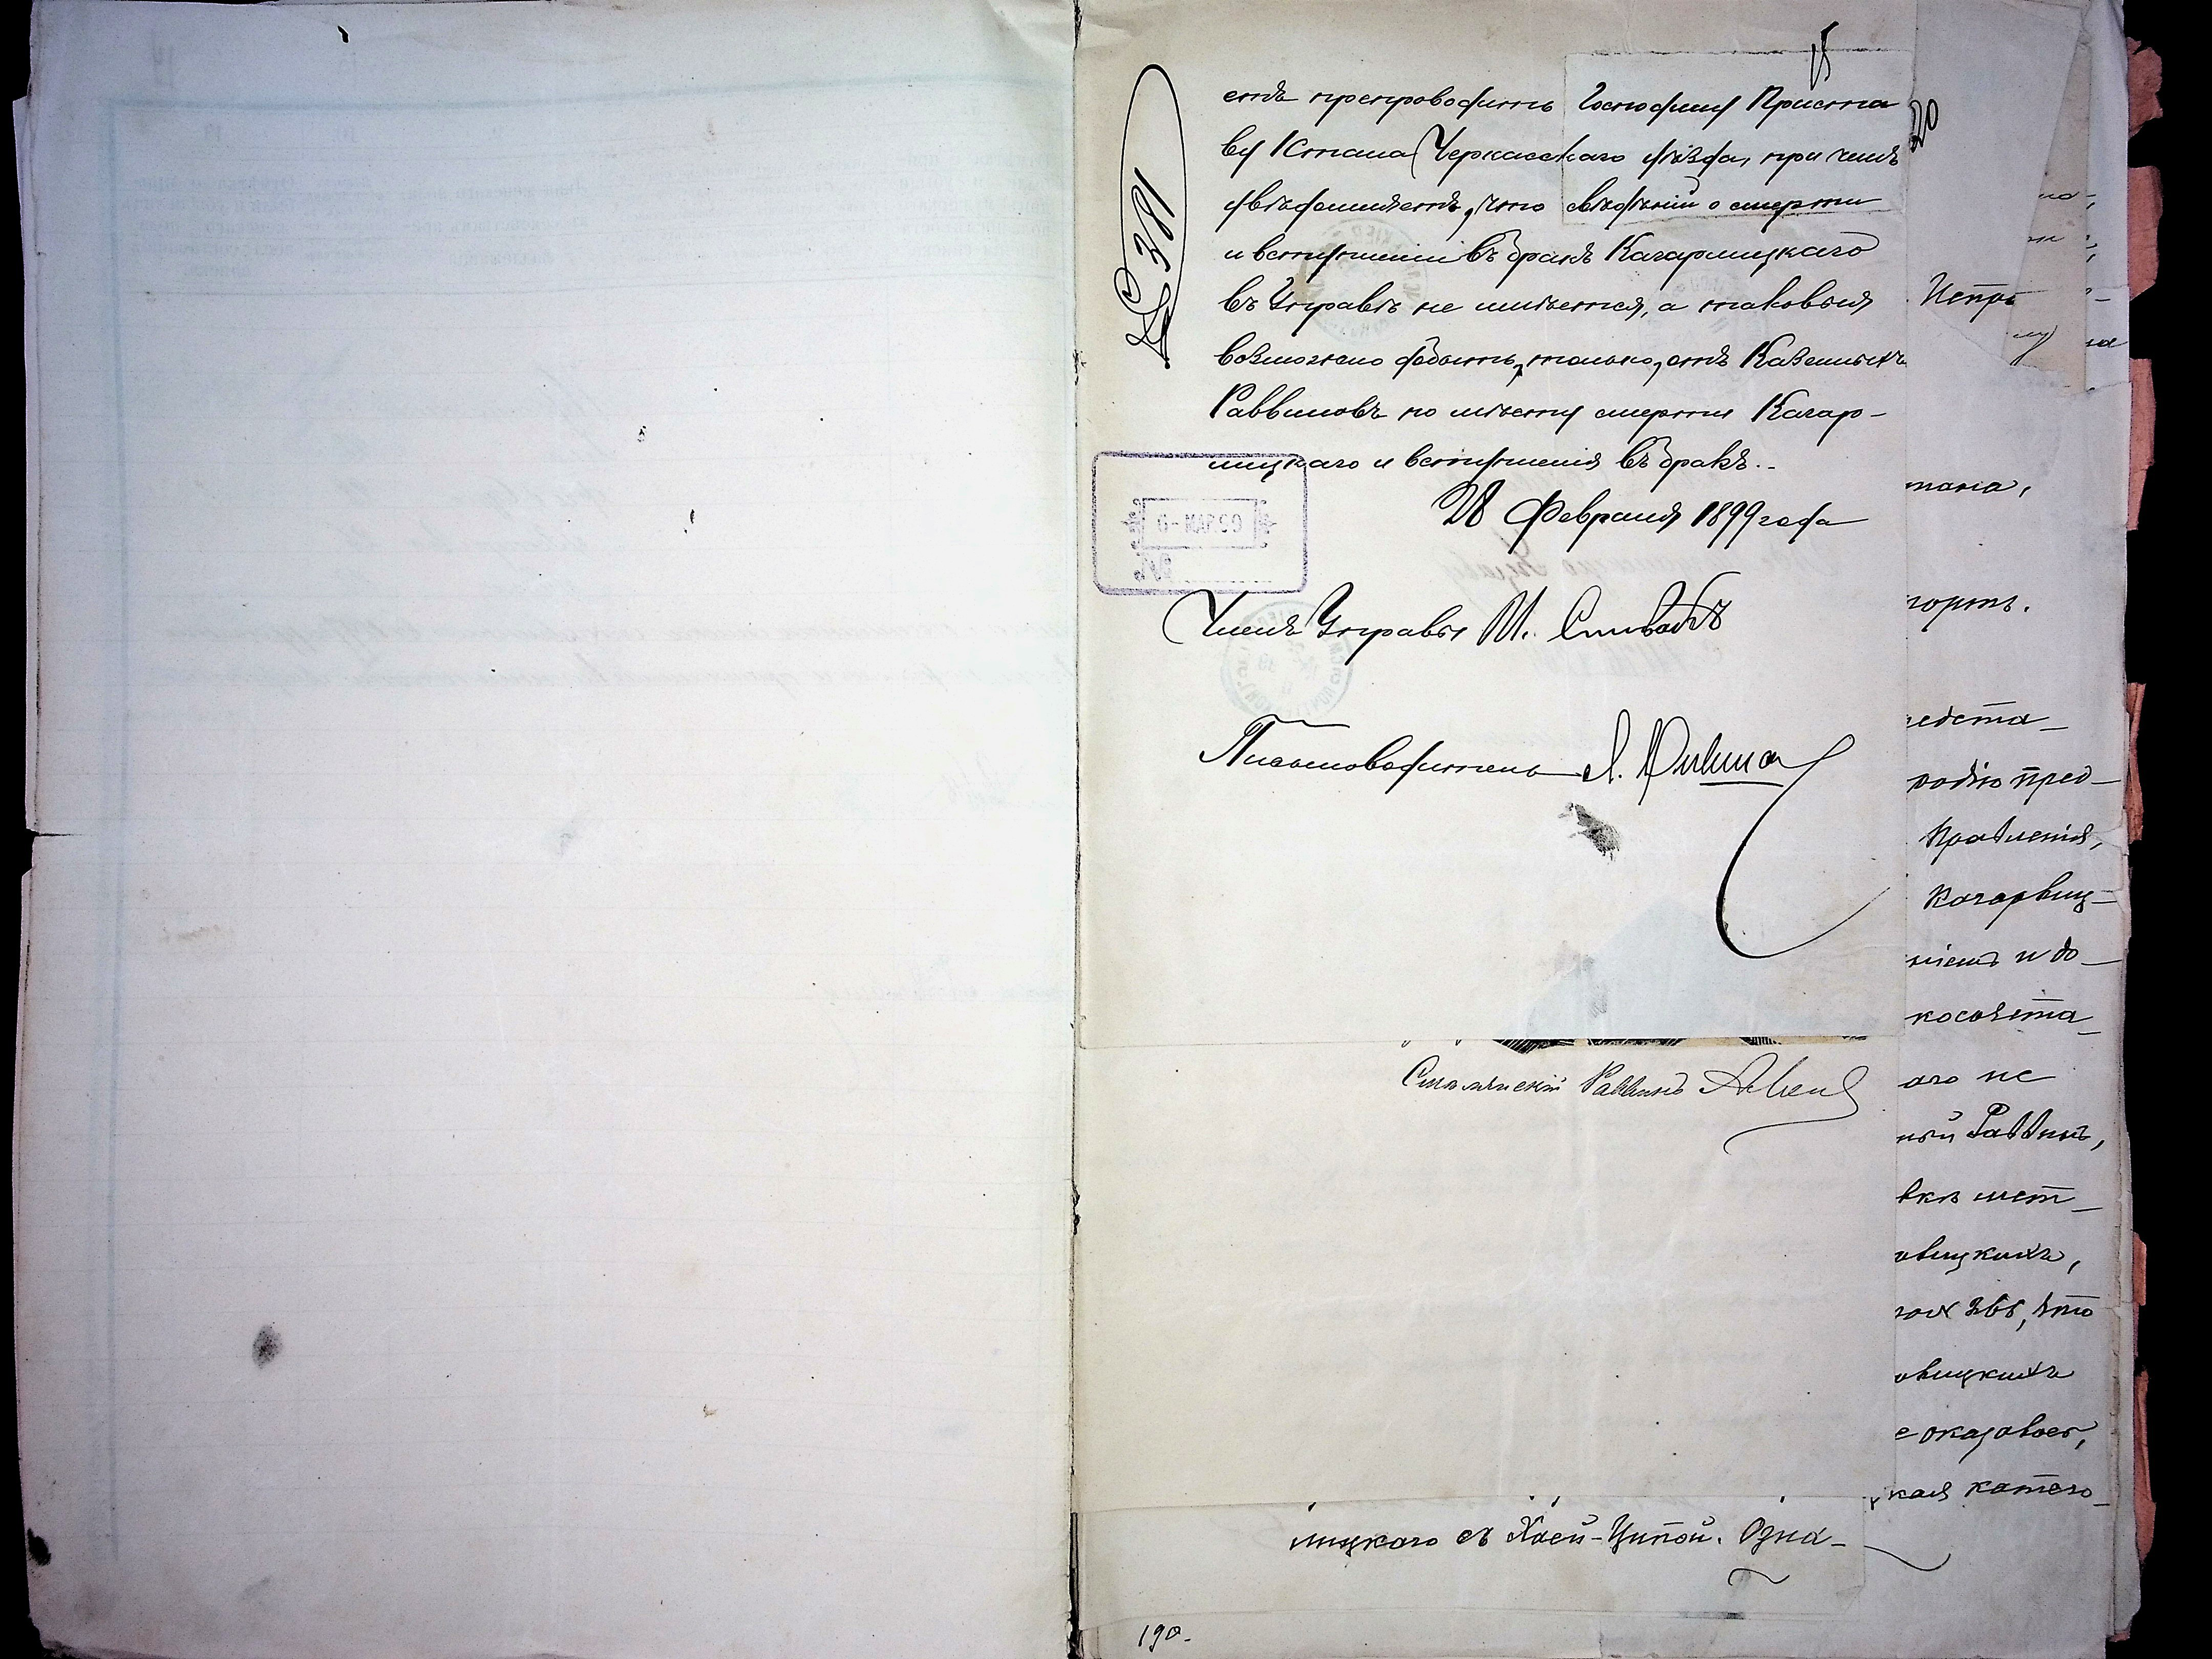 15
етъ препроводить Господину Приста
20
№ 381
ву I стана Черкасскаго уѣзда, при чемъ
увѣдомляетъ, что свѣдѣній о смерти
и вступленіи въ бракъ Кагарлицкаго
въ Управѣ не имѣется, а таковыя
возможно добыть, только, отъ Казенныхъ
Раввиновъ по мѣсту смерти Кагар-
лицкаго и вступленія въ бракъ.
28 Февраля 1899 года
Членъ Управы И.
Письмоводитель
Раввинъ
лицкаго съ Хаей-Ципой. Озна-
190.
Испра
тана,
портъ.
едста-
родію пред-
Правленія,
Кагарлиц-
ніемъ и до-
косочета-
аго не
ный Раввинъ,
вкѣ мет-
овицкихъ,
что
овицкихъ
е оказалось,
кая катего-